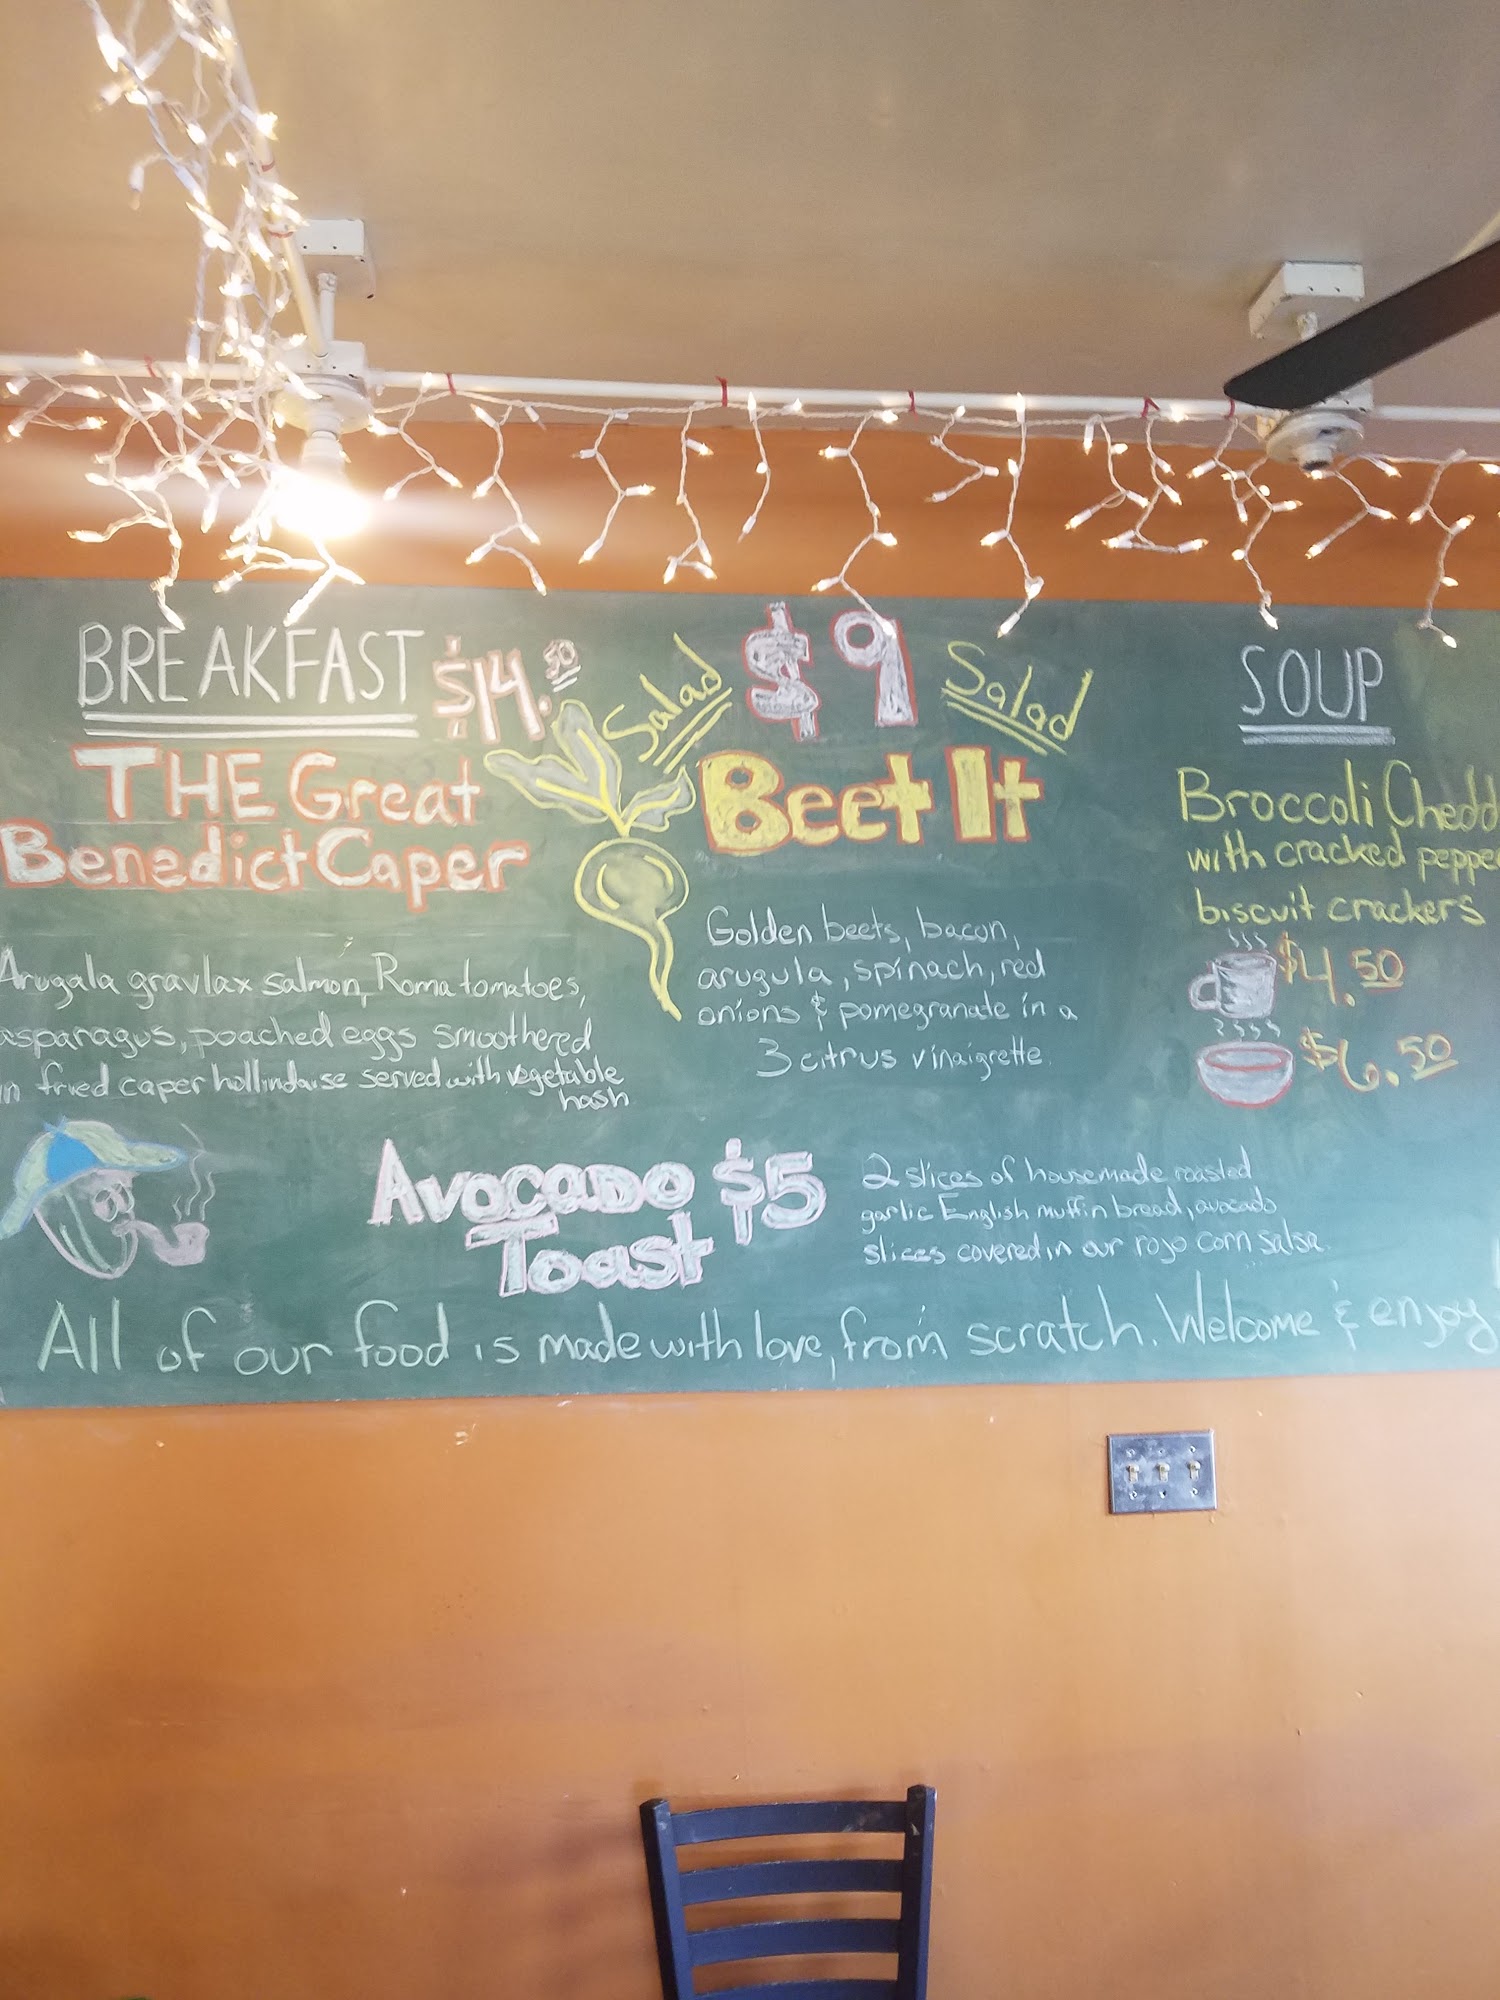 BREAKFAST $14.50
THE Great
Benedict Caper
Arugala gravlax salmon, Roma tomatoes,
asparagus, poached eggs smoothered
in fried caper hollindaise served with vegetable
hash
Salad $9 Salad
Beet It
Golden beets, bacon,
arugula, spinach, red
onions & pomegranate in a
3 citrus vinaigrette.
SOUP
Broccoli Chedd
with cracked pepper
biscuit crackers
$4.50
$6.50
Avocado $5
Toast
2 slices of housemade roasted
garlic English muffin bread, avocado
slices covered in our rojo corn salsa.
All of our food is made with love, from scratch. Welcome & enjoy